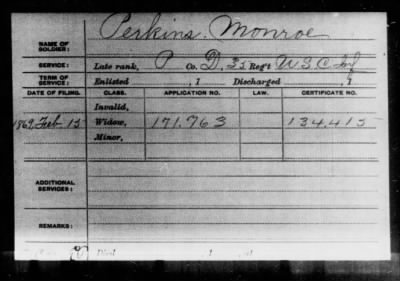 Perkins, Monroe
NAME OF SOLDIER:
SERVICE: Late rank, P Co. D, 33 Reg't U.S.C. Inf
TERM OF SERVICE: Enlisted , 1 Discharged , 1
DATE OF FILING. CLASS. APPLICATION NO. LAW. CERTIFICATE NO.
Invalid,
1869 Feb 15 Widow, 171.763 134.415
Minor,
ADDITIONAL SERVICES:
REMARKS:
Died